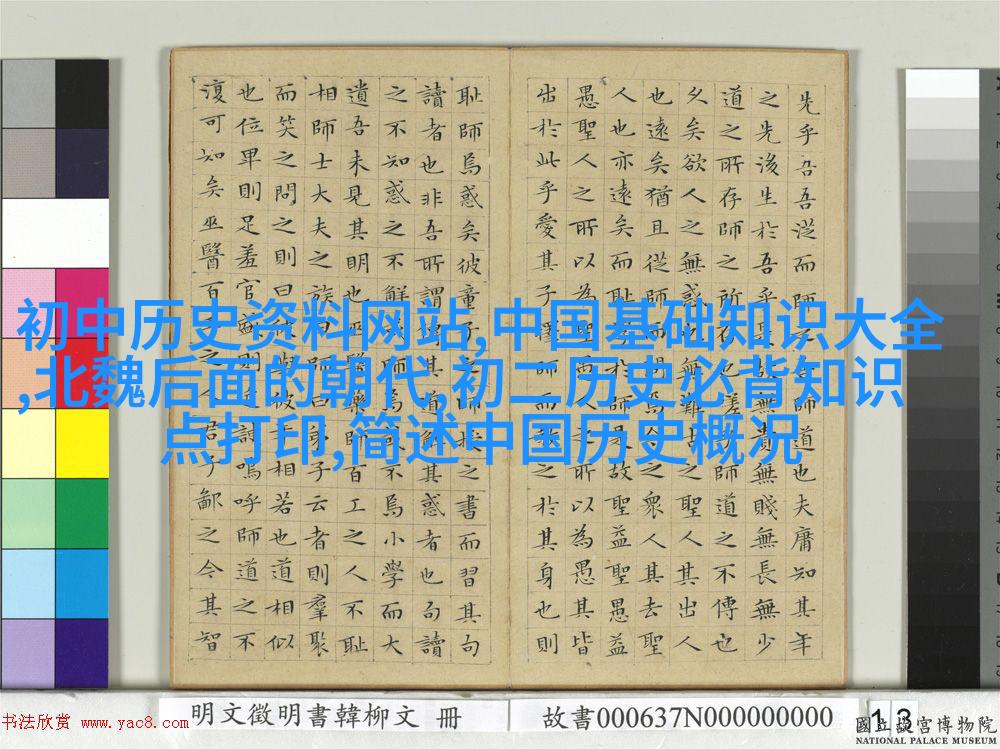 初中历史资料网站,中国基础知识大全
,北魏后面的朝代,初二历史必背知识
点打印,简述中国历史概况
先乎吾吾從而師之吾師道也夫庸知其年
之先後生於吾乎是故無貴無賤無長無少
道之所存師之所存也嗟乎師道之不傳也
久矣欲人之無惑也難矣古之聖人其出人
也遠矣猶且從師而問焉今之衆人其去聖
人也亦遠矣而恥學於師是故聖益聖愚益
愚聖人之所以為聖愚人之所以為愚其皆
出於此乎愛其子擇師而教之於其身也則
恥師焉惑矣彼童子之師授之書而習其句
讀者也非吾所謂傳其道解其惑者也句讀
之不知惑之不解或師焉或不焉小學而大
遺吾未見其明也巫醫樂師百工之人不恥
相師士大夫之族曰師曰弟子云者則羣聚
而笑之問之則曰彼與彼年相若也道相似
也位卑則足羞官盛則近諛嗚呼師道之不
復可知矣巫醫百工之人君子鄙之今其智
明文徵明書韓柳文 冊
故書000637N000000000
13
書法欣赏 www.yac8.com
國立故宮博物院
NATIONAL PALACE MUSEUM